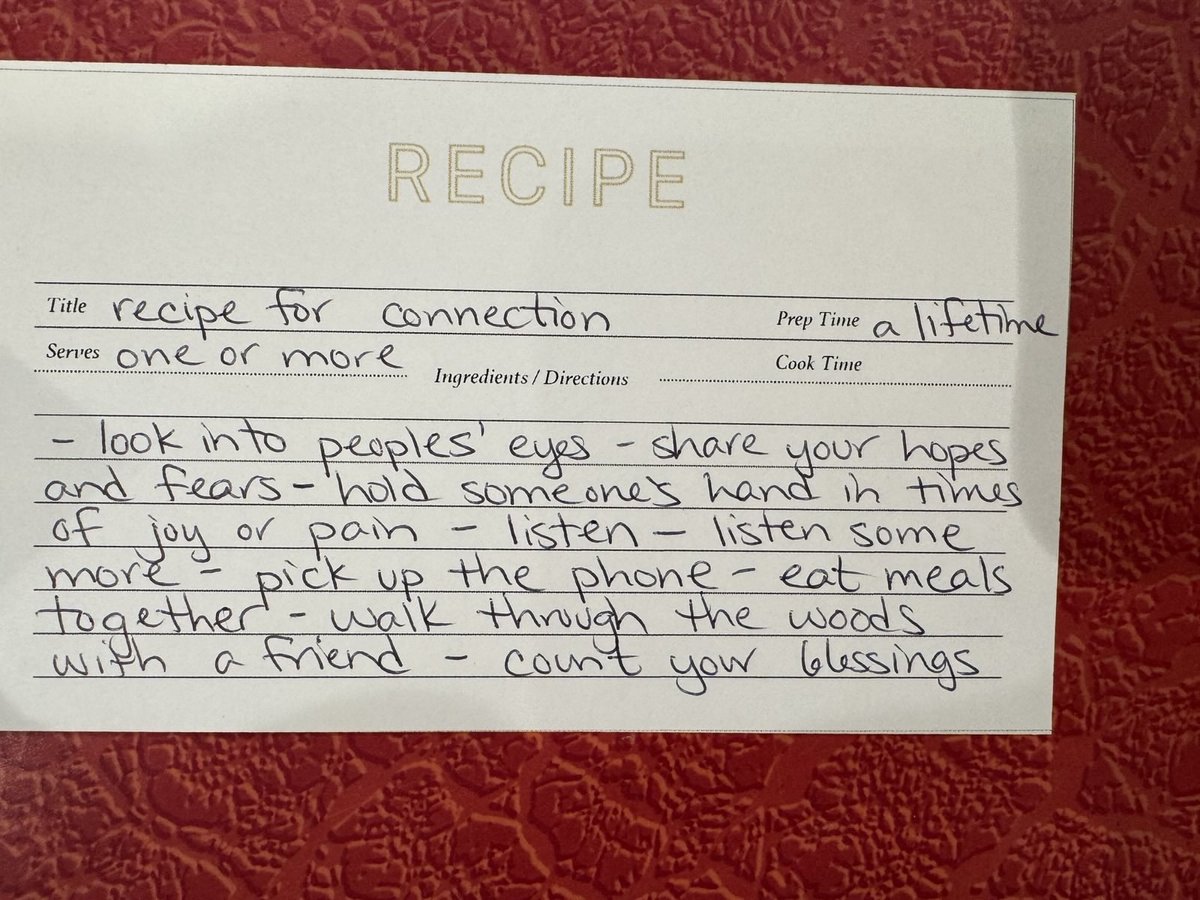 RECIPE
Title recipe for connection Prep Time a lifetime
Serves one or more Cook Time
Ingredients / Directions
- look into peoples' eyes - share your hopes
and fears - hold someone's hand in times
of joy or pain - listen - listen some
more - pick up the phone - eat meals
together - walk through the woods
with a friend - count your blessings